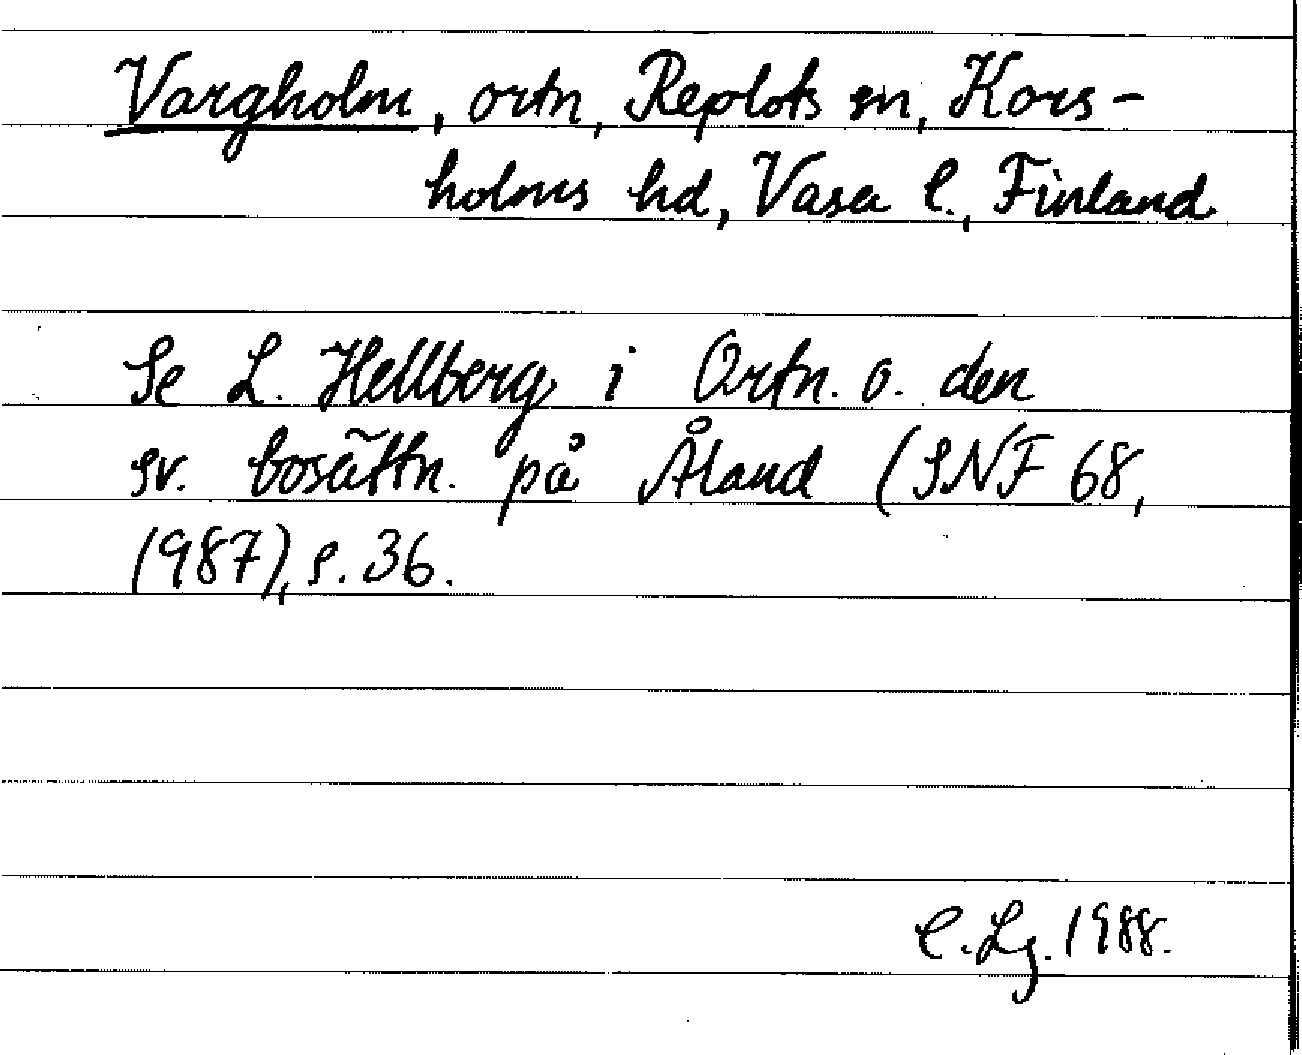 Vargholm, ortn, Replots sn, Kors-
holms hd, Vasa l., Finland
Se L. Hellberg i Ortn. o. den
sv. bosättn. på Åland (SNF 68,
1987), s. 36.
C. Lj. 1988.